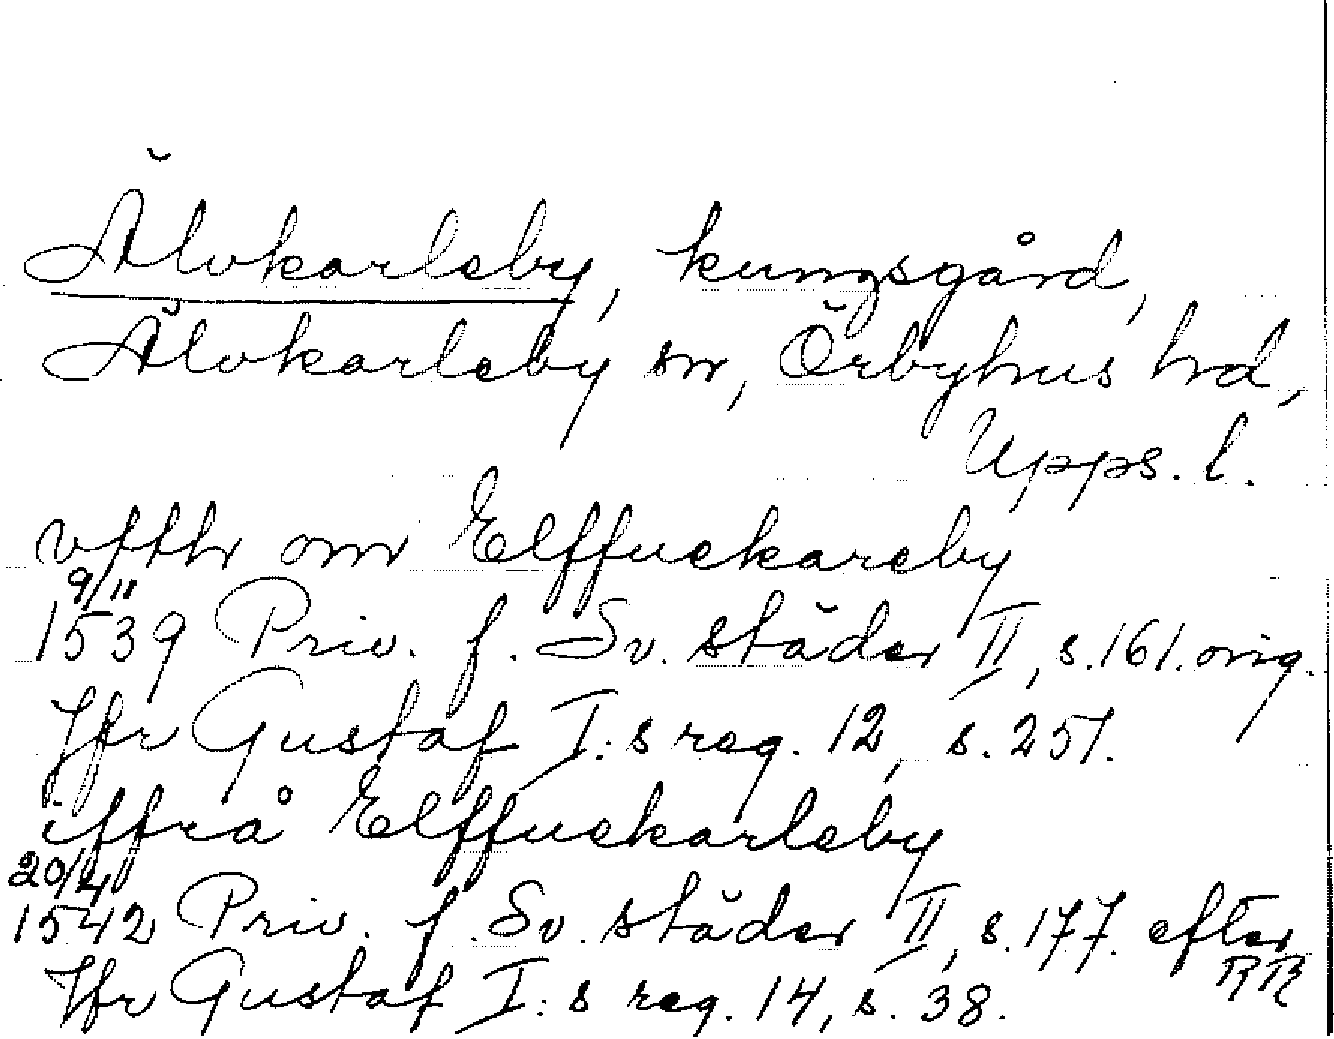 Älvkarleby, kungsgård,
Älvkarleby sn, Örbyhus hd,
Upps. l.
vtthr om Elffuekareby
9/11
1539 Priv. f. Sv. städer II, s. 161. orig.
Jfr Gustaf I:s reg. 12, s. 251.
iffrå Elffuekarleby
20/4
1542 Priv. f. Sv. städer II, s. 177. efter
RR
Jfr Gustaf I:s reg. 14, s. 38.